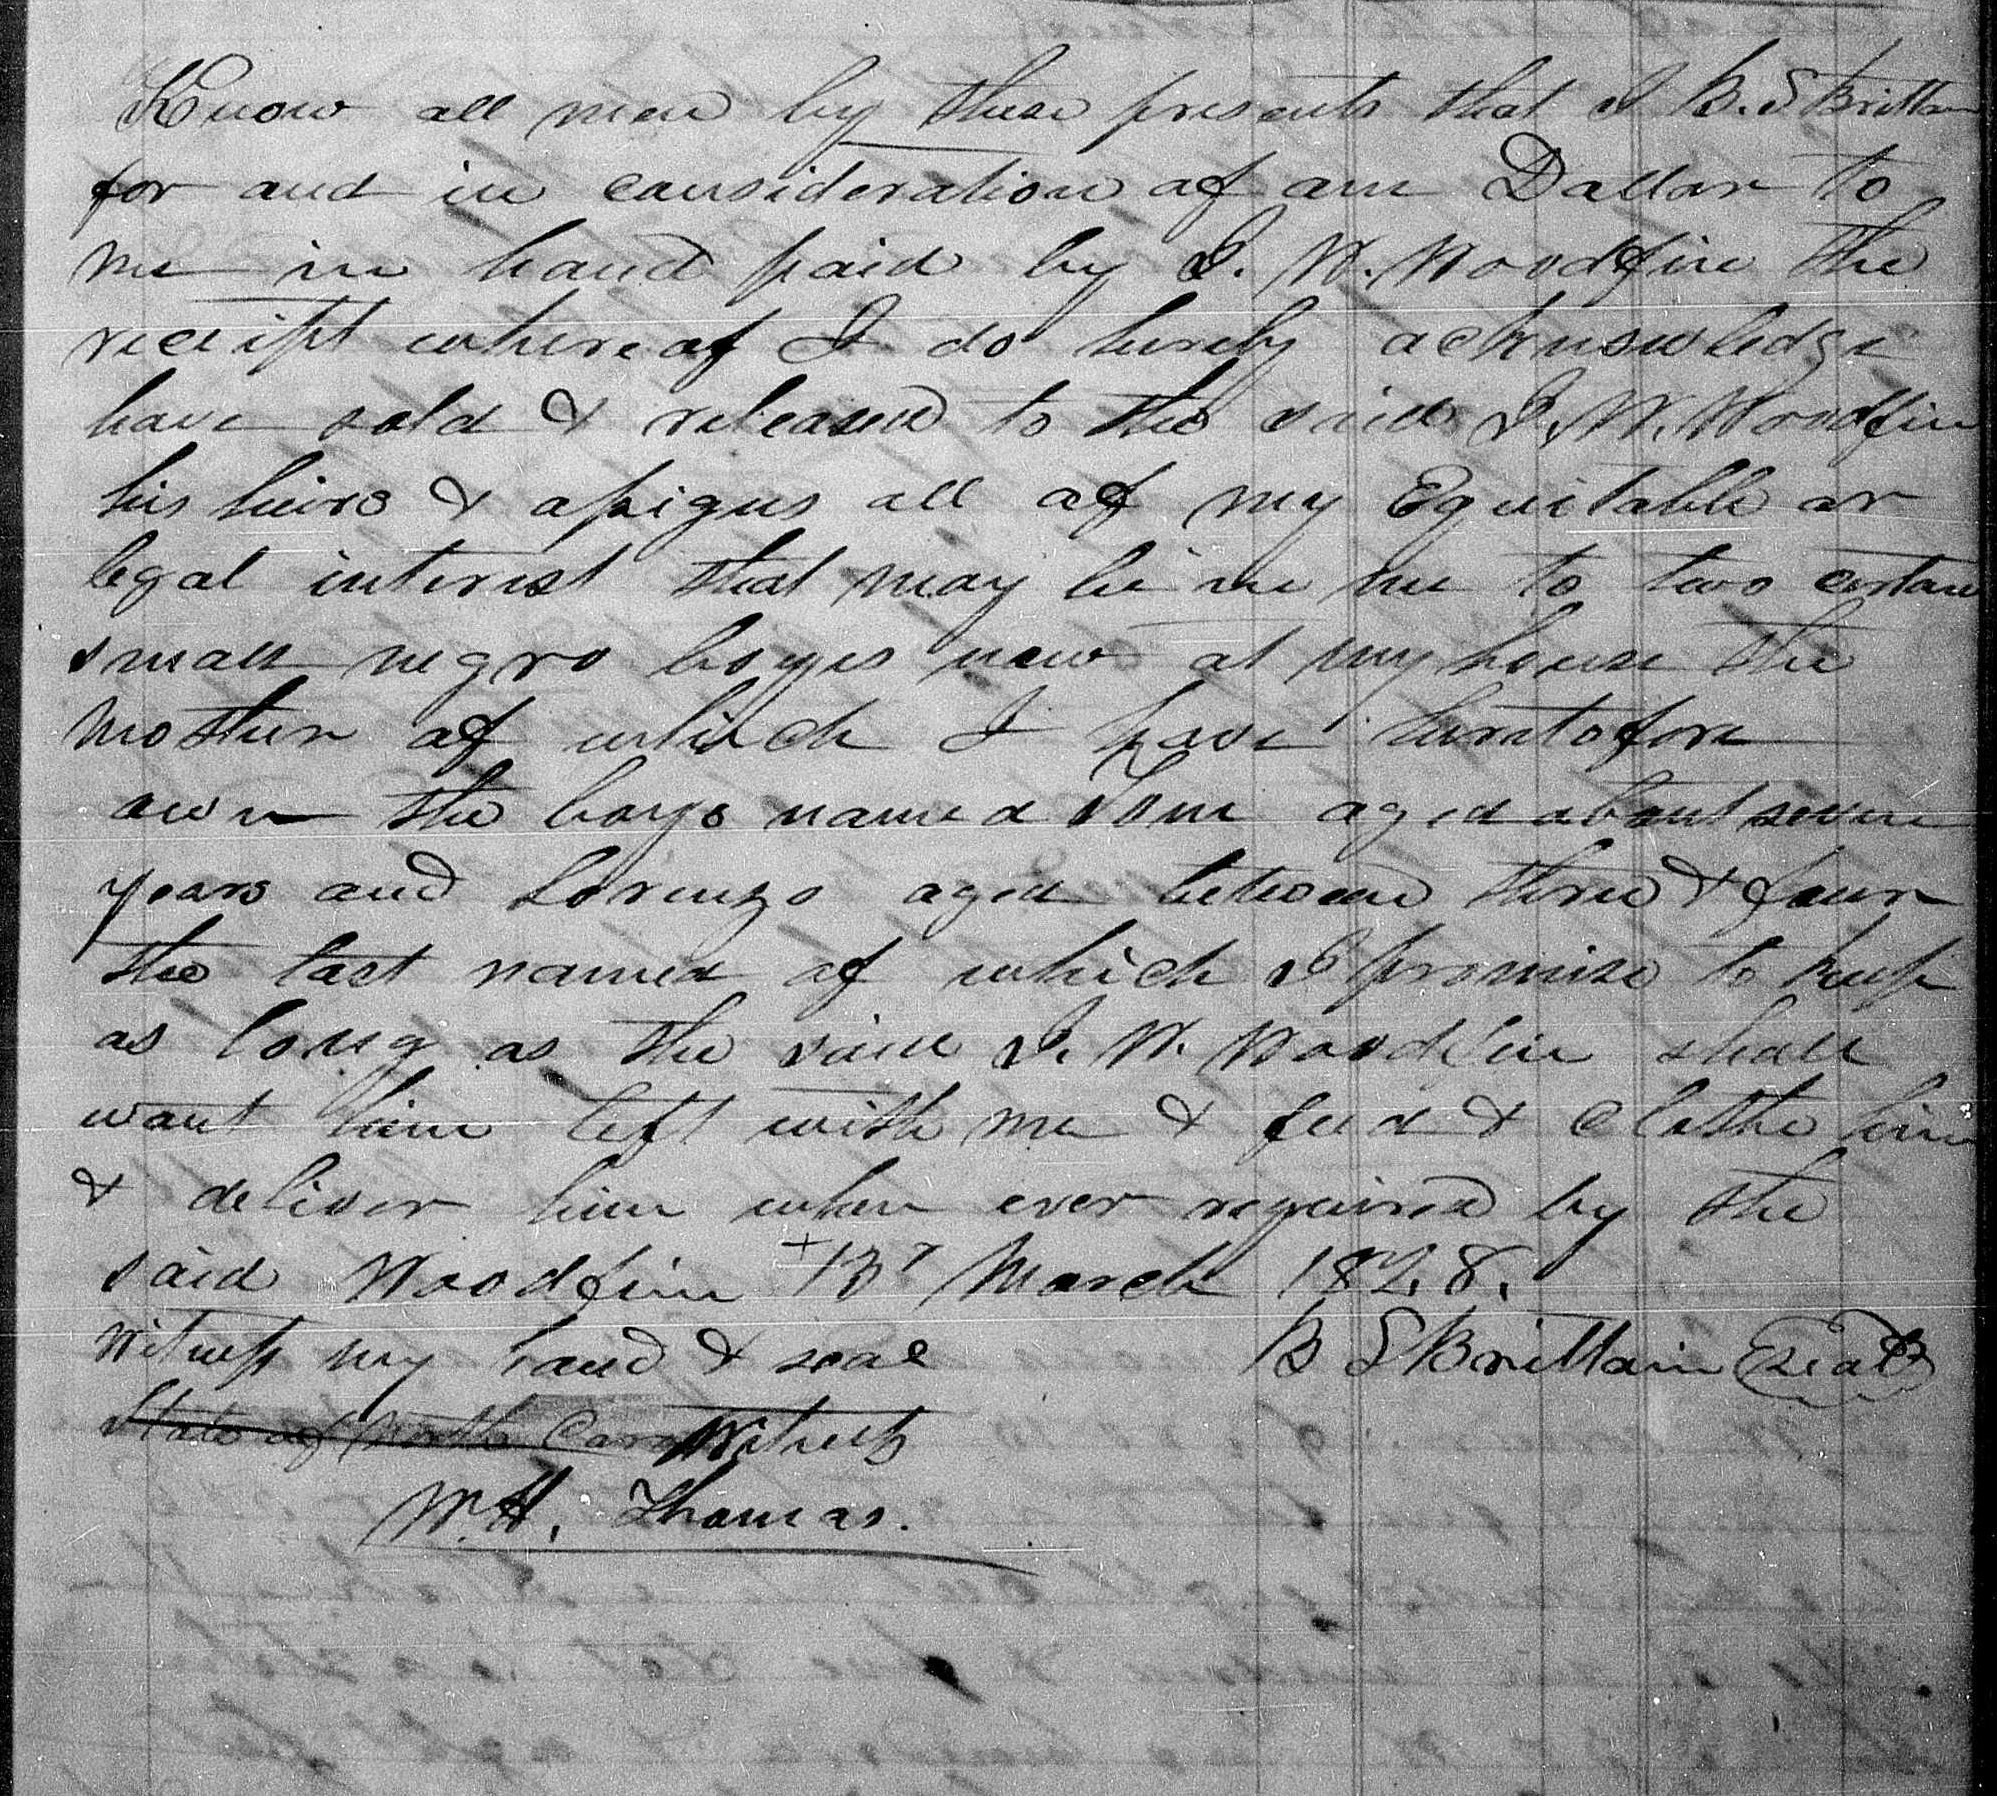 Know all men by these presents that I B. S Brittain
for and in consideration of one Dollar to
me in hand paid by J. W. Woodfin the
receipt whereof I do hereby acknowledge
have sold & released to the said J. W. Woodfin
his heirs & assigns all of my Equitable or
legal interest that may be in me to two certain
small negro boys now at my house the
Mother of which I have heretofore
own the boys named Tom aged about seven
years and Lorenzo aged between three & four
the last named of which I promise to keep
as long as the said J. W. Woodfin shall
want him left with me & feed & clothe him
& deliver him when ever required by the
said Woodfin 13 March 1828.
Witness my hand & seal B S Brittain Seal
State of North Caro Witness
W. H. Thomas.